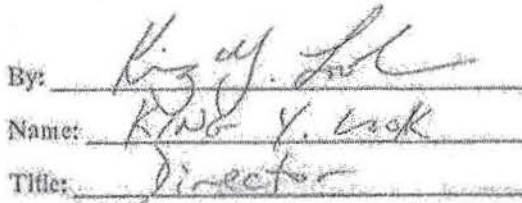 By: King Y. Look
Name: KING Y. Look
Title: Director